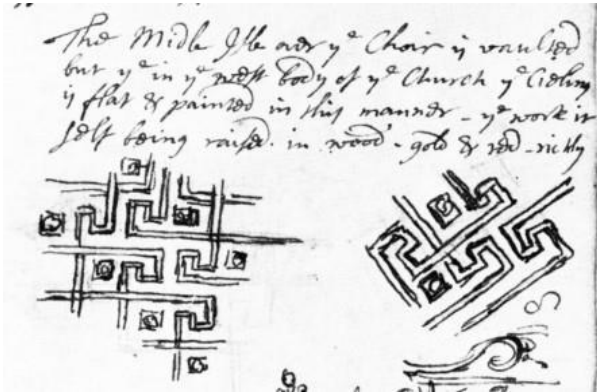 The Midle Isle over yᵉ Choir is vaulted
but yᵉ in yᵉ west body of yᵉ Church yᵉ Cieling
is flat & painted in this manner - yᵉ work it
self being raised in wood - gold & red - richly